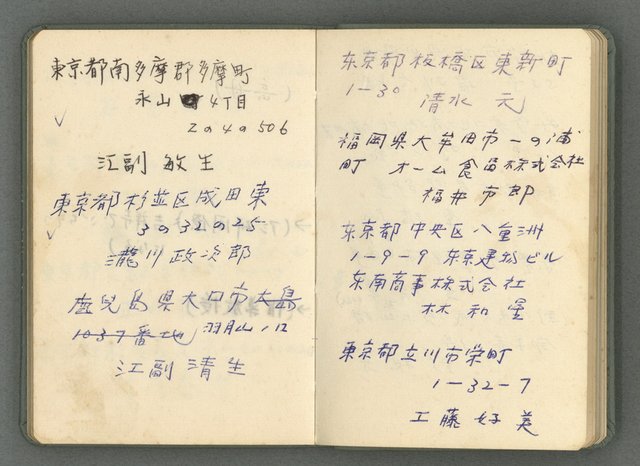 東京都南多摩郡多摩町
永山 4丁目
2の4の506
江副 敏生
東京都杉並区成田東
3の32の15
瀧川政次郎
鹿児島県大口市大島
1037番地 羽月山
江副 清生
东京都板橋区東新町
1-30
清水 元
福岡県大牟田市一の浦
町 オーム食品株式会社
福井 市郎
东京都中央区八重洲
1-9-9 东京建物ビル
东南商事株式会社
林 和星
東京都立川市栄町
1-32-7
工藤好美